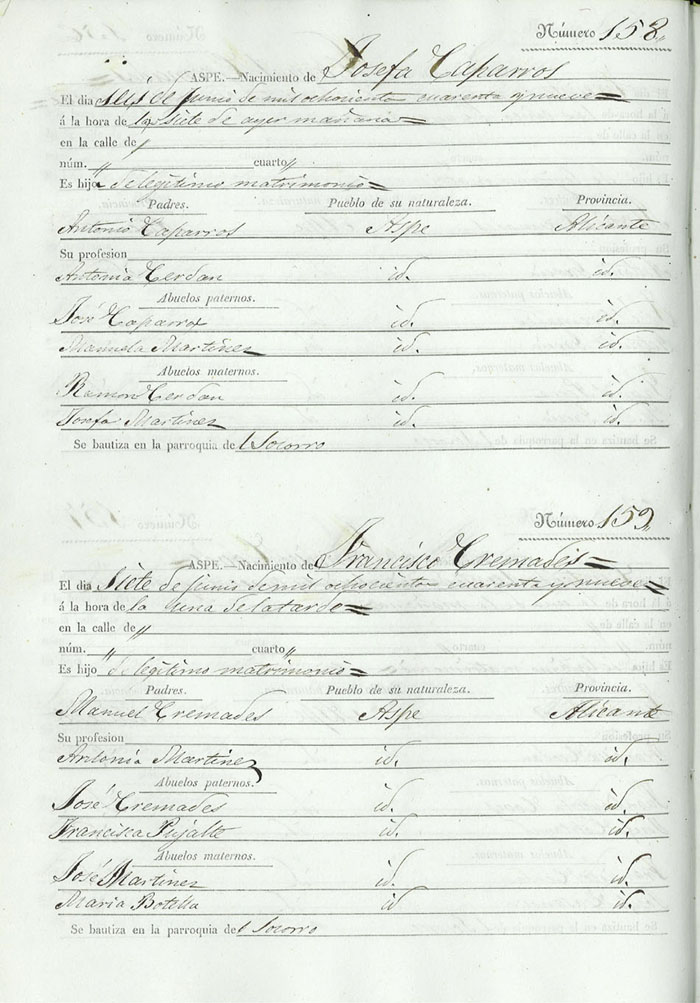 Número 158.
ASPE.—Nacimiento de Josefa Caparros
El dia seis de junio de mil ochociento cuarenta y nueve=
á la hora de las siete de ayer mañana=
en la calle de "
núm. " cuarto "
Es hija de legitimo matrimonio=
Padres. Pueblo de su naturaleza. Provincia.
Antonio Caparros Aspe Alicante
Su profesion
Antonia Cerdan id. id.
Abuelos paternos.
José Caparros id. id.
Manuela Martinez id. id.
Abuelos maternos.
Ramon Cerdan id. id.
Josefa Martinez id. id.
Se bautiza en la parroquia del Socorro
Número 159.
ASPE.—Nacimiento de Francisco Cremades=
El dia siete de junio de mil ochociento cuarenta y nueve=
á la hora de la una de la tarde=
en la calle de "
núm. " cuarto "
Es hijo de legitimo matrimonio=
Padres. Pueblo de su naturaleza. Provincia.
Manuel Cremades Aspe Alicante
Su profesion
Antonia Martinez id. id.
Abuelos paternos.
José Cremades id. id.
Francisca Pujalte id. id.
Abuelos maternos.
José Martinez id. id.
Maria Botella id id.
Se bautiza en la parroquia del Socorro